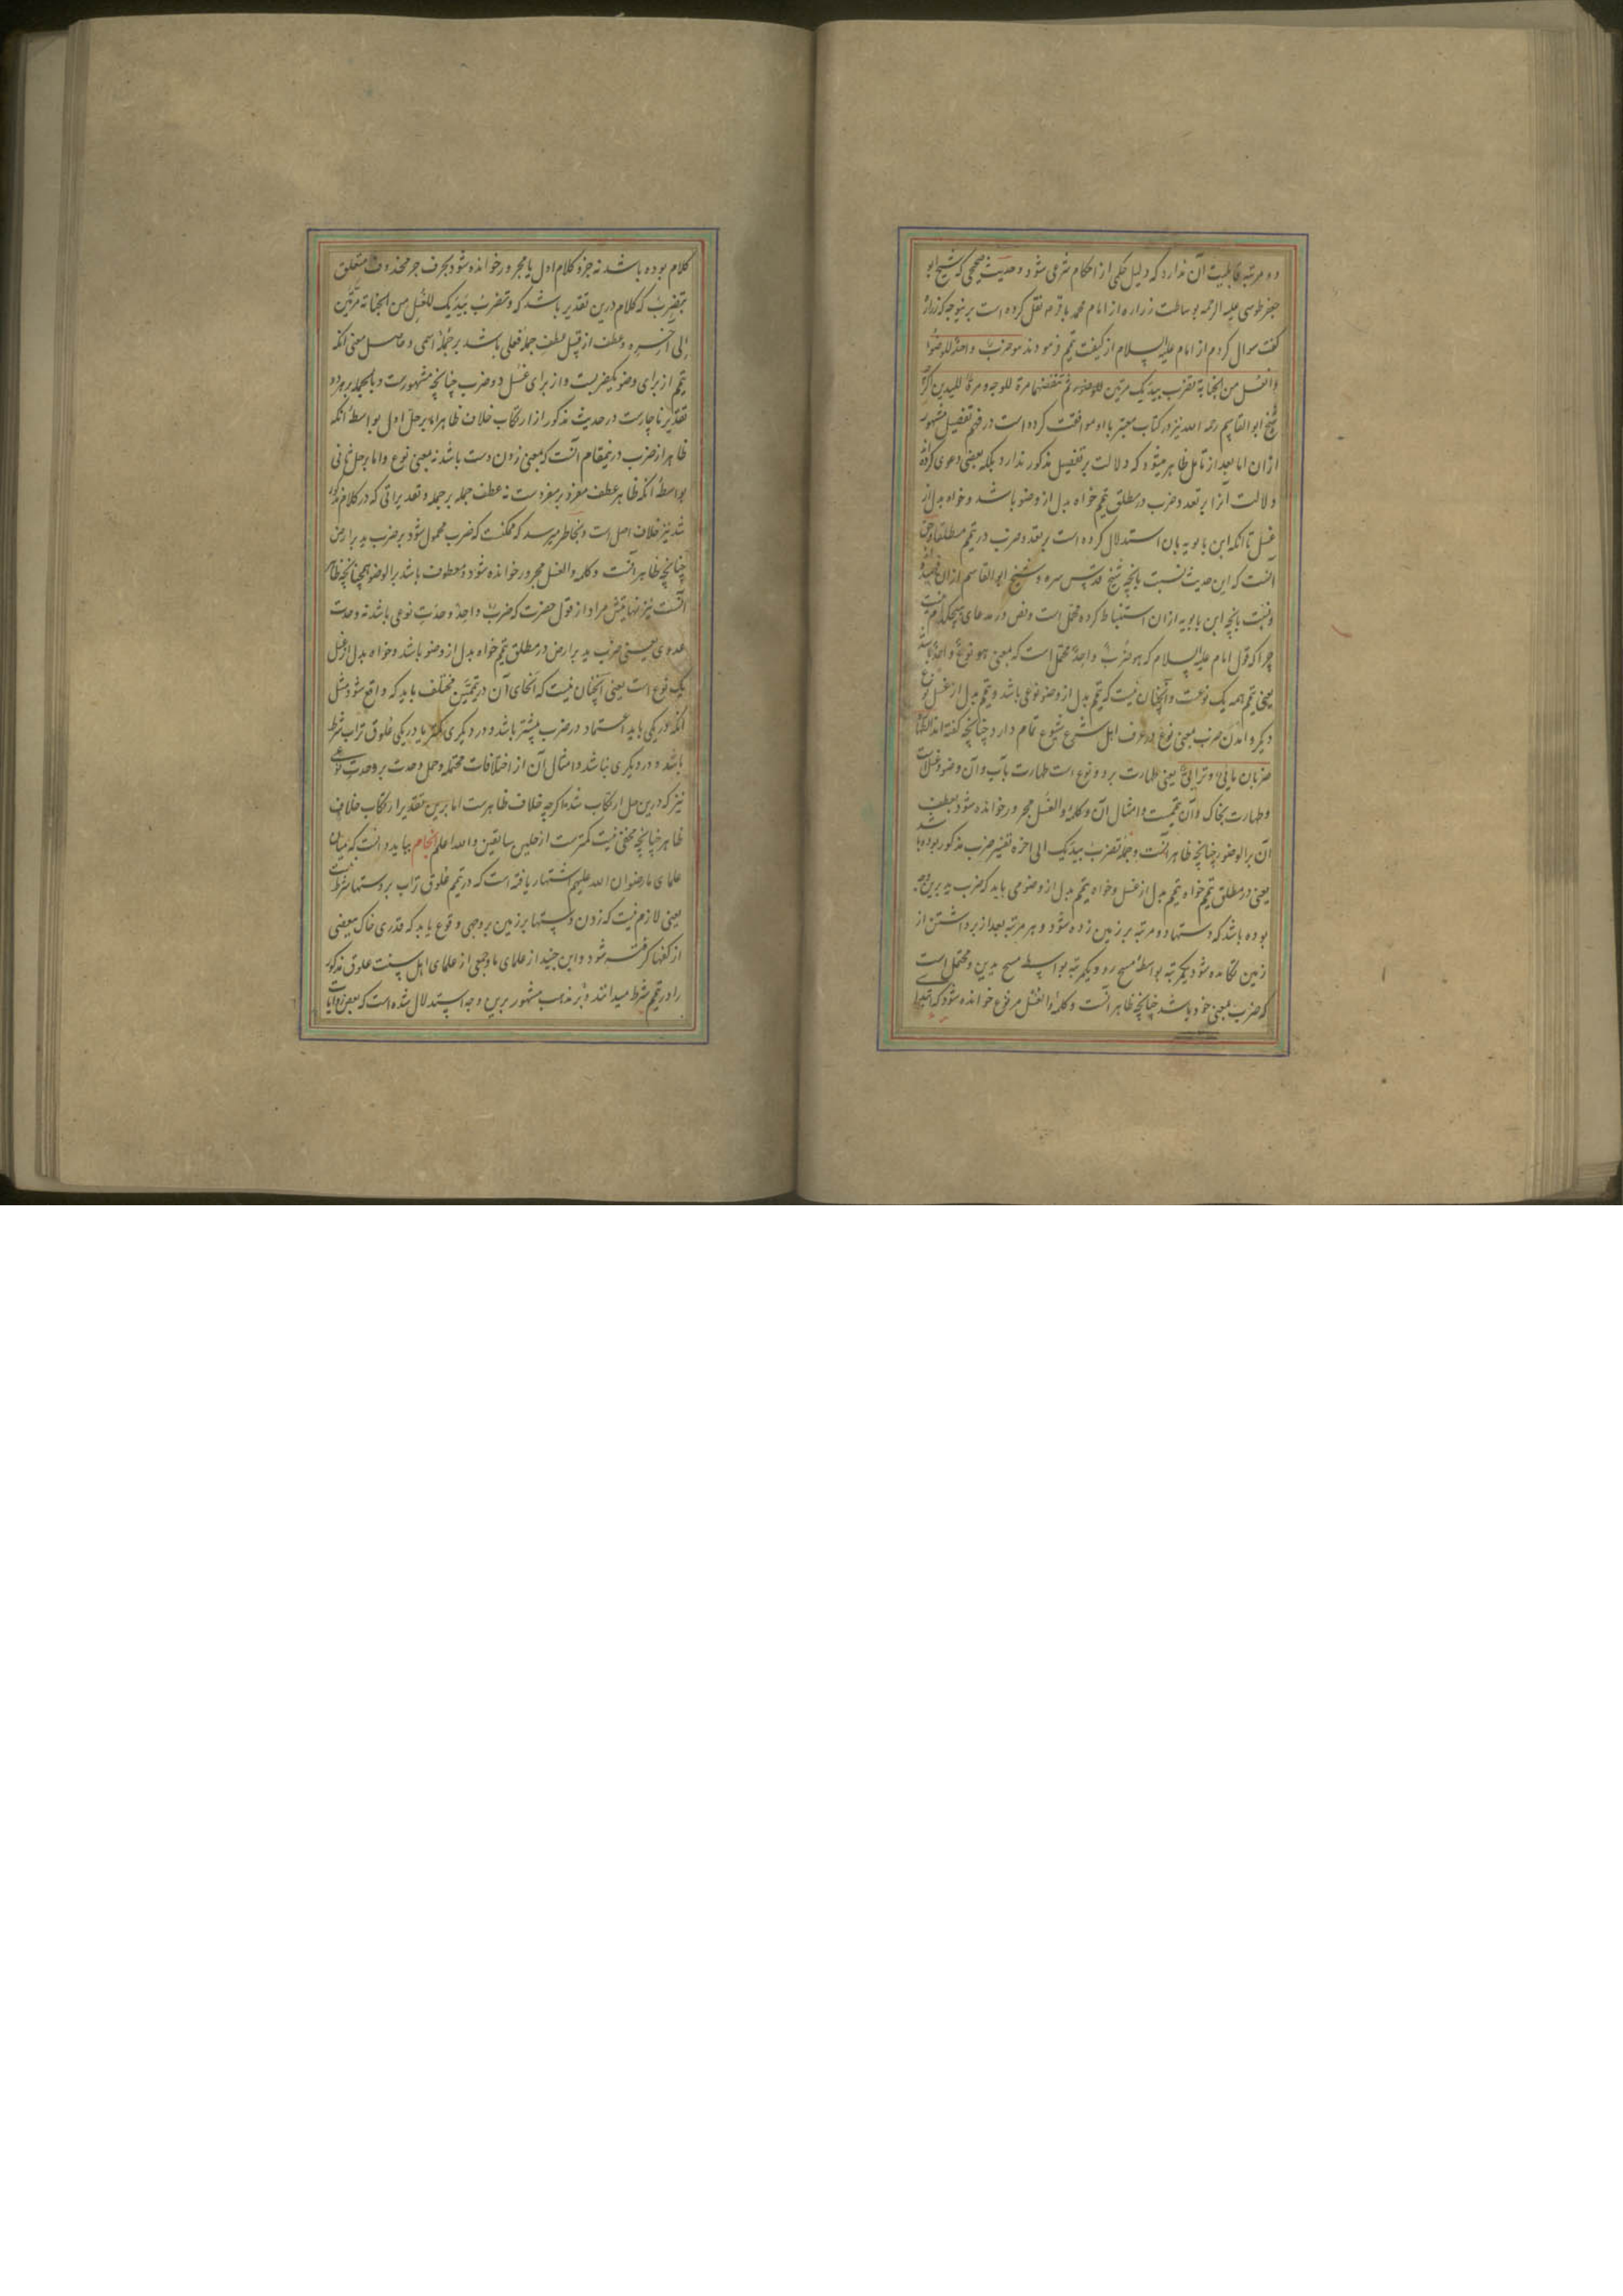 دو مرتبه قابلیت آن ندارد که دلیل حکمی از احکام شرعی شود و حدیث صحیحی که شیخ ابو
جعفر طوسی علیه الرحمه بوساطت زراره از امام محمد باقر ع نقل کرده است برینوجه که زراره
گفت سوال کردم از امام علیه السلام از کیفیت تیمم فرمودند هو ضربٌ واحدٌ للوضوء
والغسل من الجنابة تضرب بیدیک مرتین ثم تنفضهما مرة للوجه ومرة للیدین
شیخ ابوالقاسم رحمه الله نیز در کتاب معتبر با او موافقت کرده است در فهم تفصیل مشهور
ازان اما بعد از تأمل ظاهر میشود که دلالت بر تفصیل مذکور ندارد بلکه بعضی دعوی کرده
دلالت آنرا بر تعدد ضرب در مطلق تیمم خواه بدل از وضو باشد و خواه بدل از
غسل تا آنکه ابن بابویه بان استدلال کرده است بر تعدد ضرب در تیمم مطلقا و حق
آنست که این حدیث نسبت بانچه شیخ قدس سره و شیخ ابوالقاسم ازان فهمیده
و نسبت بانچه ابن بابویه ازان استنباط کرده محتمل است و نص در مدعای هیچکدام نیست
چرا که قول امام علیه السلام که هو ضربٌ واحدٌ محتمل است که بمعنی هو نوعٌ واحدٌ باشد
یعنی تیمم همه یک نوعست و آنچنان نیست که تیمم بدل از وضو نوعی باشد و تیمم بدل از غسل نوع
دیگر و آمدن ضرب بمعنی نوع در عرف اهل شرع شیوع تمام دارد چنانچه گفته اند الطهارة
ضربان مائیٌ وترابیٌ یعنی طهارت بر دو نوع است طهارت بآب و آن وضو و غسلست
و طهارت بخاک و آن تیممست و امثال آن و کلمه والغسل مجرور خوانده شود بعطف
آن بر الوضوء چنانچه ظاهر آنست و جمله تضرب بیدیک الی آخره تفسیر ضرب مذکور بوده باشد
یعنی در مطلق تیمم خواه تیمم بدل از غسل و خواه تیمم بدل از وضو می باید که ضرب ید برین وجه
بوده باشد که دستها دو مرتبه بر زمین زده شود و هر مرتبه بعد از برداشتن از
زمین تکانده شود یکمرتبه بواسطه مسح رو و یکمرتبه بواسطه مسح یدین و محتمل است
که ضرب بمعنی خود باشد چنانچه ظاهر آنست و کلمه والغسل مرفوع خوانده شود که ابتدای
کلام بوده باشد نه جزو کلام اول یا مجرور خوانده شود بحرف جر محذوف متعلق
بتضرب که کلام درین تقدیر باشد که وتضرب بیدیک للغسل من الجنابة مرتین
الی آخره و عطف از قبیل عطف جمله فعلی باشد بر جمله اسمی و حاصل معنی انکه
تیمم از برای وضو یکضربست و از برای غسل دو ضرب چنانچه مشهورست و بالجمله بر هر دو
تقدیر ناچارست در حدیث مذکور از ارتکاب خلاف ظاهر اما بر حل اول بواسطه انکه
ظاهر از ضرب درینمقام آنست که بمعنی زدن دست باشد نه بمعنی نوع و اما بر حل ثانی
بواسطه انکه ظاهر عطف مفرد بر مفردست نه عطف جمله بر جمله و تقدیراتی که در کلام مذکور
شد نیز خلاف اصل است و بخاطر میرسد که ممکنست که ضرب محمول شود بر ضرب ید بر ارض
چنانچه ظاهر آنست و کلمه والغسل مجرور خوانده شود و معطوف باشد بر الوضو همچنانچه ظاهر
آنست نیز نهایتش مراد از قول حضرت که ضربٌ واحدٌ وحدت نوعی باشد نه وحدت
عددی یعنی ضرب ید بر ارض در مطلق تیمم خواه بدل از وضو باشد و خواه بدل از غسل
یک نوع است یعنی آنچنان نیست که انحای آن در تیممین مختلف باید که واقع شود مثل
انکه در یکی باید اعتماد در ضرب بیشتر باشد و در دیگری کمتر یا در یکی علوق تراب شرط
باشد و در دیگری نباشد و امثال آن از اختلافات محتمله و حمل وحدت بر وحدت نوعی
نیز که درین حل ارتکاب شد اگرچه خلاف ظاهرست اما برین تقدیر ارتکاب خلاف
ظاهر چنانچه مخفی نیست کمترست از حلین سابقین والله اعلم انجام بباید دانست که میان
علمای ما رضوان الله علیهم اشتهار یافته است که در تیمم علوق تراب بر دستها شرط نیست
یعنی لازم نیست که زدن دستها بر زمین بر وجهی وقوع یابد که قدری خاک ببعضی
از کفها گرفته شود و ابن جنید از علمای ما و جمعی از علمای اهل سنت علوق مذکور
را در تیمم شرط میدانند و بر مذهب مشهور برین وجه استدلال شده است که بعضی روایات